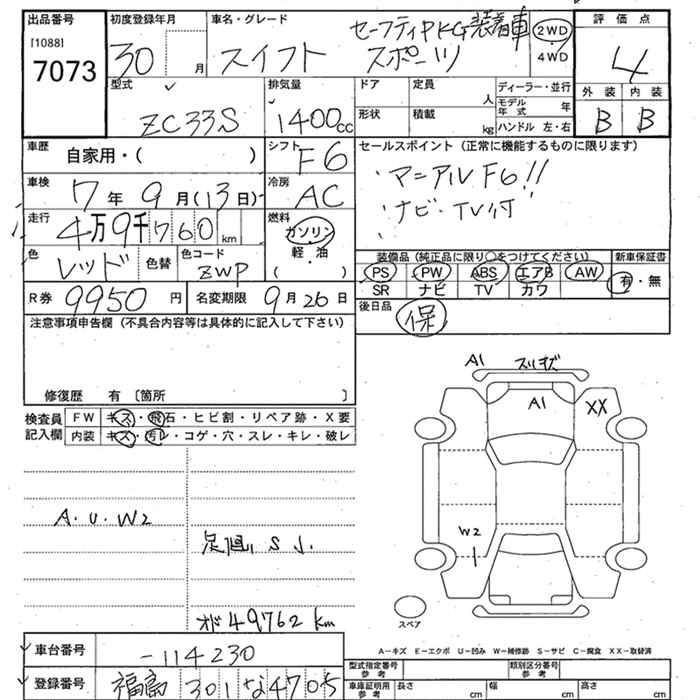 出品番号
[1088]
7073
初度登録年月
30 月
車名・グレード
スイフト スポーツ
セーフティPKG装着車
2WD
4WD
評価点
4
外装 内装
B B
型式
ZC33S
排気量
1400cc
ドア
定員
人
形状
積載
kg
ディーラー・並行
モデル年式 年
ハンドル 左・右
車歴
自家用・( )
シフト
F6
セールスポイント(正常に機能するものに限ります)
・マニアルF6!!
・ナビ・TV付
車検
7年9月(13日)
冷房
AC
走行
4万9千760km
燃料
ガソリン
軽・油
( )
色
レッド
色替
色コード
ZWP
装備品(純正品に限り○をつけてください)
PS PW ABS エアB AW
SR ナビ TV カワ
新車保証書
有・無
R券
9950円
名変期限
9月26日
後日品
保
注意事項申告欄(不具合内容等は具体的に記入して下さい)
修復歴 有〔箇所 〕
検査員記入欄
FW キズ・飛石・ヒビ割・リペア跡・X要
内装 キズ・汚レ・コゲ・穴・スレ・キレ・破レ
A.U.W2
足廻 S小
オド49762km
A1 スリキズ
A1
XX
W2
スペア
A-キズ E-エクボ U-凹み W-補修跡 S-サビ C-腐食 XX-取替済
車台番号
-114230
登録番号
福岡 301な4705
型式指定番号
参考
類別区分番号
参考
車庫証明用
参考
長さ cm
幅 cm
高さ cm